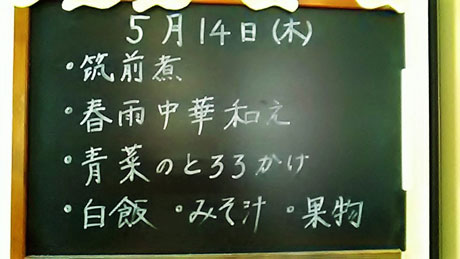 5月14日(木)
・筑前煮
・春雨中華和え
・青菜のとろろかけ
・白飯 ・みそ汁 ・果物